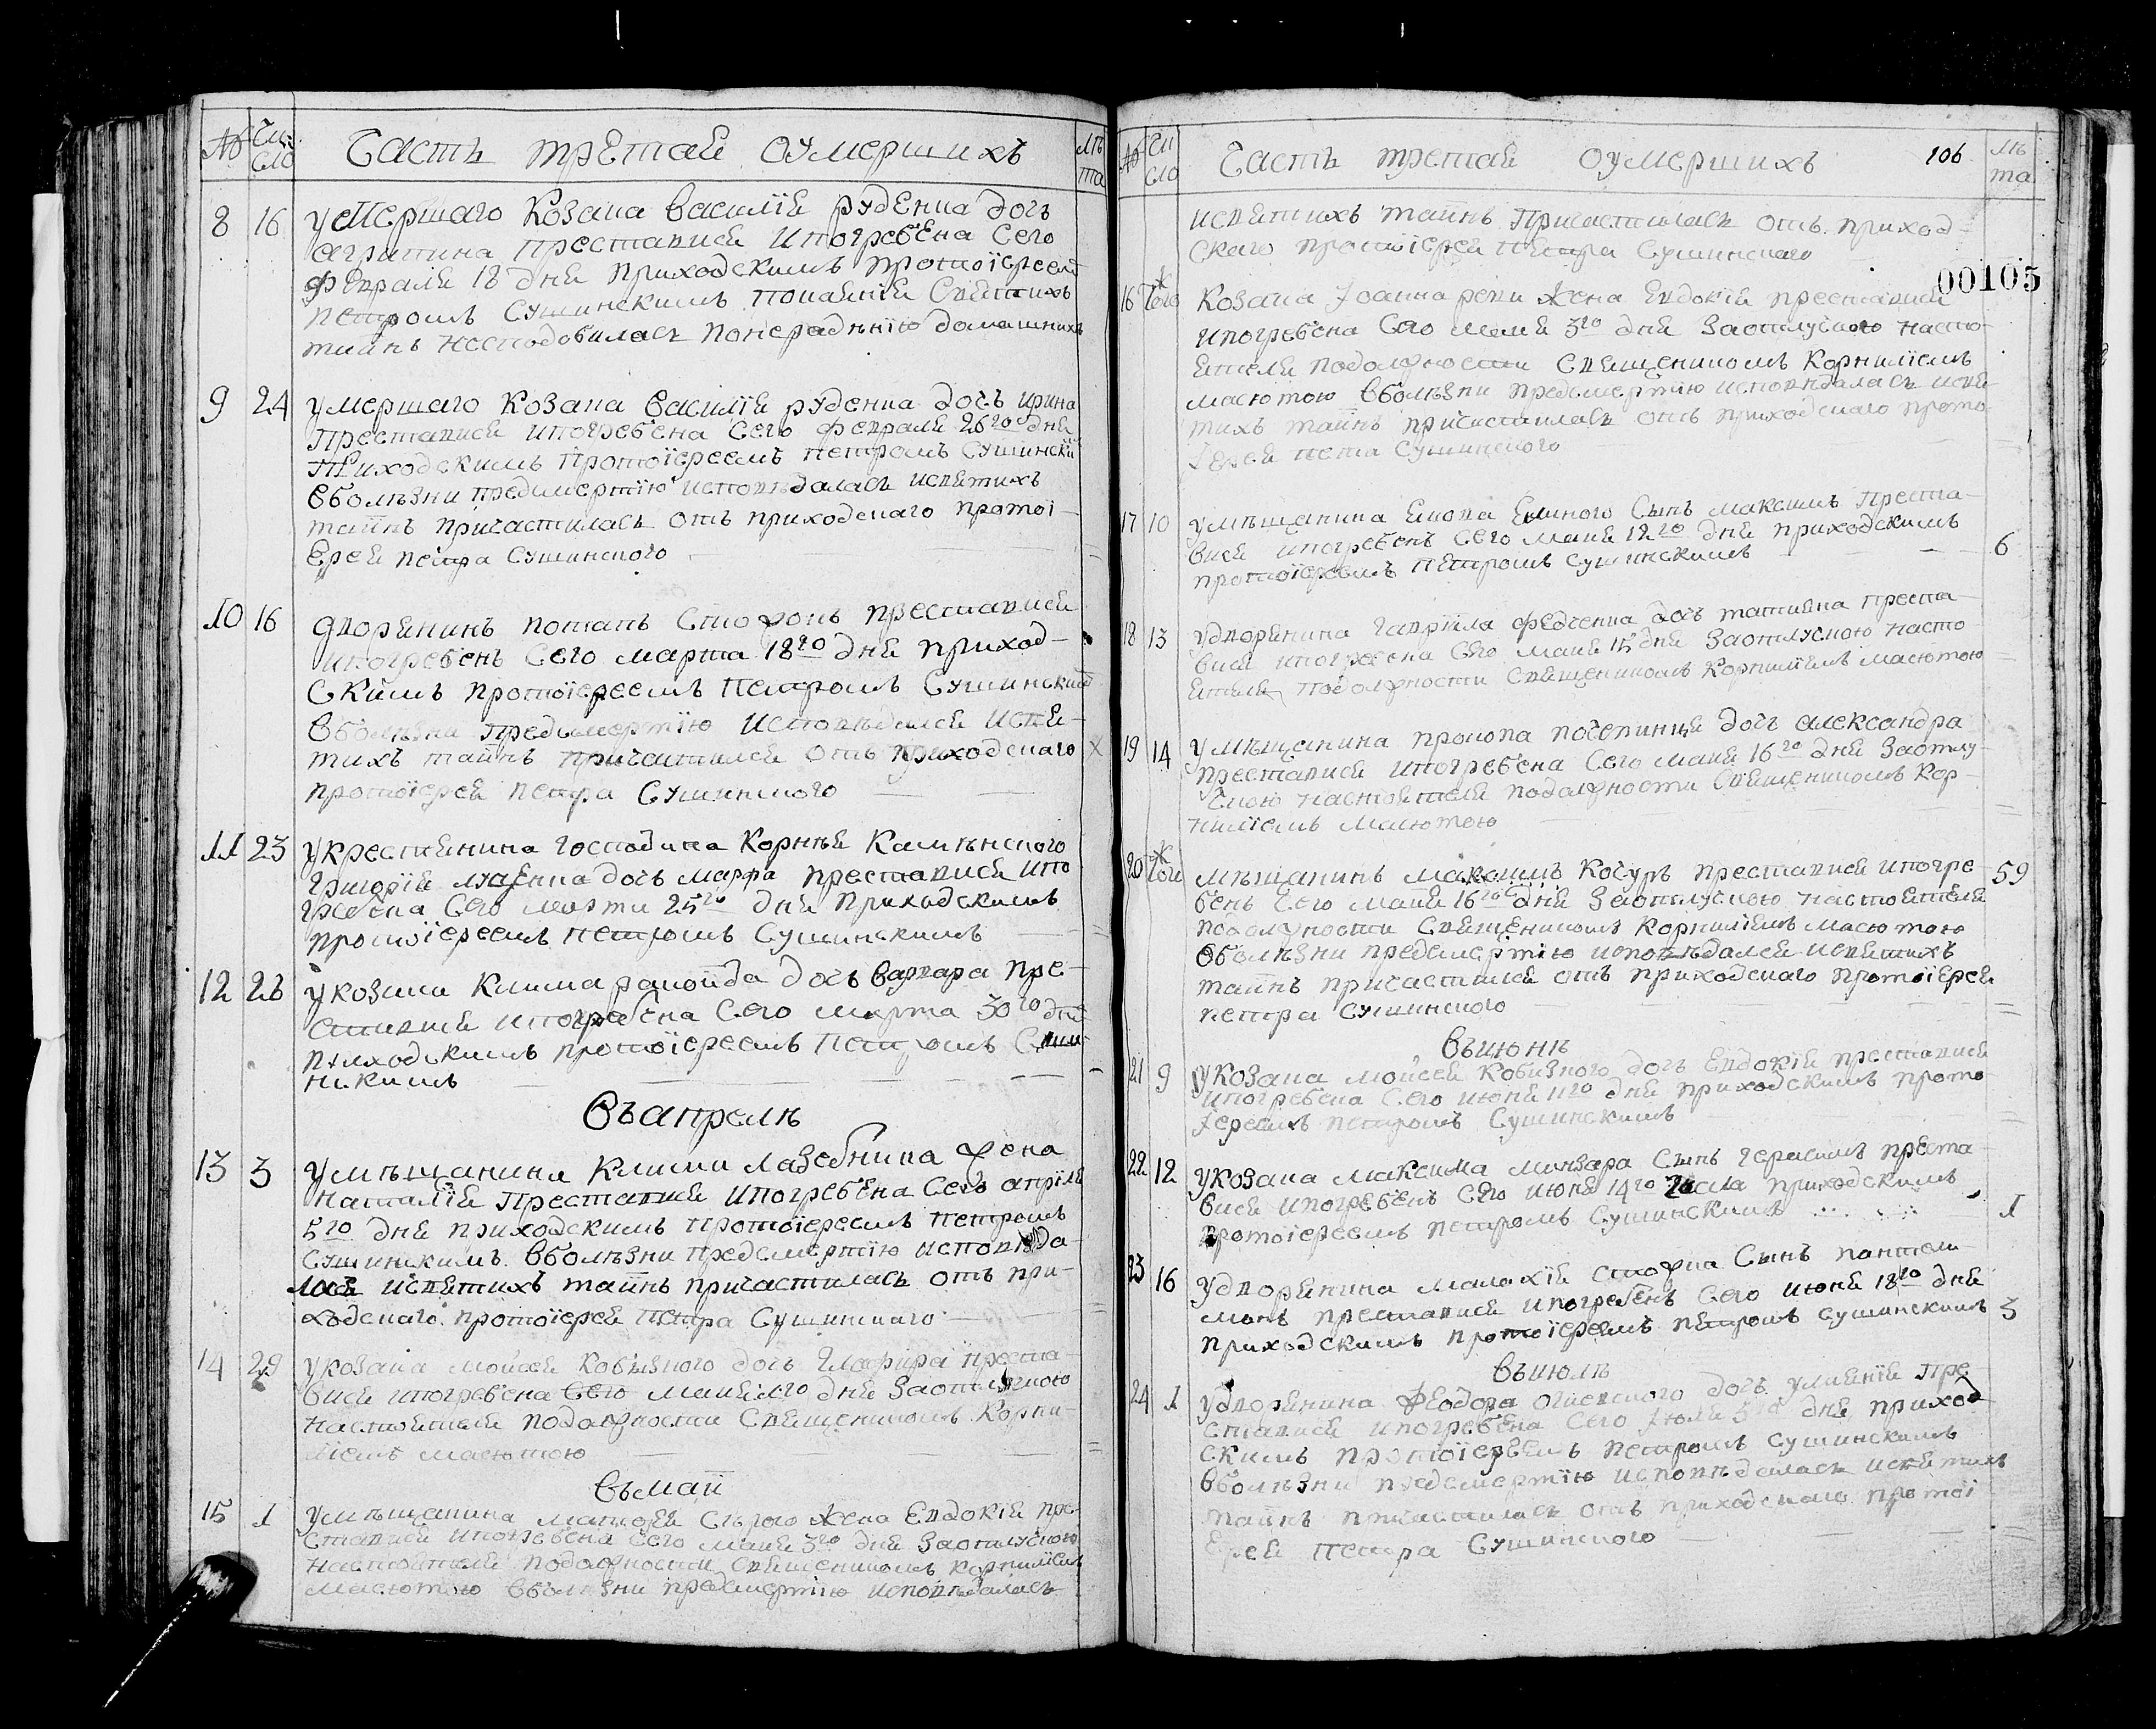 № Число Часть третая оумершихъ Лѣта
8 16 Умершаго Козака Василія руденка дочь
агрипина преставися Ипогребена Сего
февраля 18 дня приходскимъ протоїереемъ
петромъ Сушинскимъ Святихъ
тайнъ несподобилась понерадѣнію домашнихъ
9 24 Умершаго Козака Василія руденка дочь ирина
Преставися ипогребена Сего февраля 26го дня
Приходскимъ Протоїереемъ петромъ Сушински
Вболѣзни предсмертїю исповѣдалась исвятихъ
тайнъ причастилась отъ приходскаго протої-
Ерея петра Сушинского
10 16 дворянинъ потапъ преставися
ипогребенъ Сего марта 18го дня приход-
скимъ протоїереемъ Петромъ Сушинскимъ
Вболѣзни предсмертїю исповѣдался исвя-
тихъ тайнъ причастился отъ приходскаго
протоїерея петра Сушинского
11 23 Укрестянина господина Корнѣя Каменского
григорія дочь марфа преставися ипо
гребена Сего марта 25го дня Приходскимъ
протоїереемъ петромъ Сушинскимъ
12 28 Укозака Клима дочь варвара пре-
ставися ипогребена Сего марта 30го дня
приходскимъ протоїереемъ Петромъ Суши-
нскимъ
Въапрелѣ
13 3 Умѣщанина Клима Лазебника жена
Наталїя Преставися ипогребена Сего апрѣля
5го дня приходскимъ Протоїереемъ петромъ
Сушинскимъ. Вболѣзни предсмертїю исповѣда-
лась исвятихъ тайнъ причастилась отъ при-
ходскаго протоїерея Петра Сушинского
14 29 Укозака Мойсея Кобизкого дочь Глафира преста-
вися ипогребена Сего маия 1го дня Заотлучкою
настоятеля подолжности Священикомъ Корни-
лїемъ масютою
Въмаїи
15 1 Умѣщанина Матфея Сѣрого жена Евдокія пре-
ставися ипогребена Сего маия 3го дня Заотлучкою
настоятеля подолжности Священикомъ Корнилїемъ
Масютою Вболѣзни предсмертїю исповѣдалась
№ Число Часть третая оумершихъ 106 Лѣта
исвятихъ тайнъ Причастилась отъ приход-
скаго протоїерея петра Сушинского
00105
16 Тогож Козака Іоанна жена Евдокія преставися
ипогребена Сего маия 3го дня Заотлучкою насто-
ятеля подолжности Священикомъ Корнилїемъ
масютою Вболѣзни предсмертїю исповѣдалась исвя-
тихъ тайнъ причастилась отъ приходскаго прото-
Іерея Сушинского
17 10 Умѣщанина Сынъ максимъ Преста-
вися ипогребенъ Сего маия 12го дня приходскимъ 6
протоїереемъ Петромъ Сушинскимъ
18 13 Удворянина гавріила федченка дочь татияна преста-
вися ипогребена Сего маия 15 дня Заотлучкою насто-
ятеля Подолжности Священикомъ Корнилїемъ масютою
19 14 Умѣщанина прокопа дочь александра
преставися ипогребена Сего маия 16го дня Заотлу-
чкою настоятеля подолжности Священикомъ Кор-
нилїемъ масютою
20 Тогож мѣщанинъ максимъ Коцуръ преставися ипогре- 59
бенъ Сего маия 16го дня Заотлучкою настоятеля
подолжности Священикомъ Корнилїемъ масютою
Вболѣзни предсмертїю исповѣдался исвятихъ
тайнъ причастился отъ приходскаго протоїерея
петра Сушинского
Въиюнѣ
21 9 Укозака Мойсея Кобизкого дочь Евдокія преставися
ипогребена Сего июня 11го дня приходскимъ прото-
Іереемъ петромъ Сушинскимъ
22 12 Укозака Максима Сынъ герасимъ преста-
вися ипогребенъ Сего июня 14го числа приходскимъ
протоїереемъ петромъ Сушинскимъ 1
23 16 Удворянина Малахія Сынъ пантели-
монъ преставися ипогребенъ Сего июня 18го дня
приходскимъ протоїереемъ петромъ Сушинскимъ 3
Въиюлѣ
24 1 Удворянина Феодора дочь Улиянїя Пре-
ставися ипогребена Сего Іюля 3го дня приход-
скимъ протоїереемъ петромъ Сушинскимъ
Вболѣзни предсмертїю исповѣдалась исвятихъ
тайнъ причастилась отъ приходскаго протої
Ерея Петра Сушинского